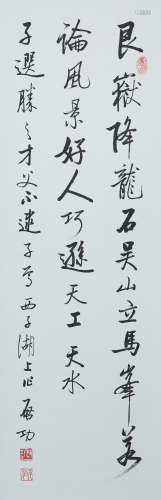 艮嶽降龍石吴山立馬峯若
論風景好人巧遜天工天水
子選勝之才父不逮子為西子湖上作啟功